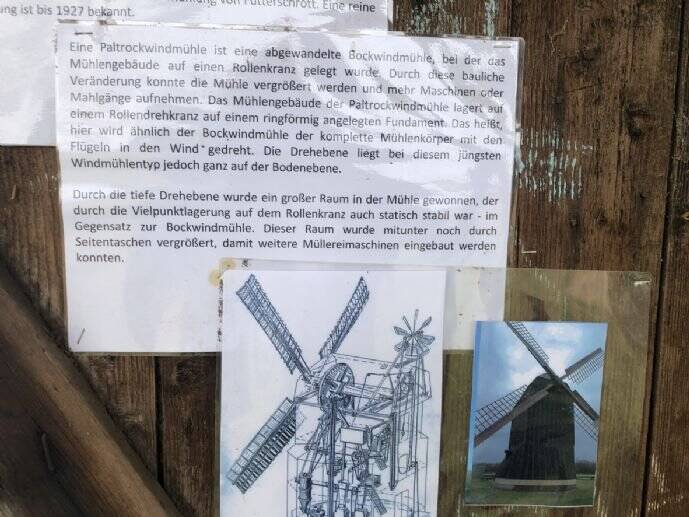 ung von Futterschrott. Eine reine
ng ist bis 1927 bekannt.
Eine Paltrockwindmühle ist eine abgewandelte Bockwindmühle, bei der das
Mühlengebäude auf einen Rollenkranz gelegt wurde. Durch diese bauliche
Veränderung konnte die Mühle vergrößert werden und mehr Maschinen oder
Mahlgänge aufnehmen. Das Mühlengebäude der Paltrockwindmühle lagert auf
einem Rollendrehkranz auf einem ringförmig angelegten Fundament. Das heißt,
hier wird ähnlich der Bockwindmühle der komplette Mühlenkörper mit den
Flügeln in den Wind gedreht. Die Drehebene liegt bei diesem jüngsten
Windmühlentyp jedoch ganz auf der Bodenebene.
Durch die tiefe Drehebene wurde ein großer Raum in der Mühle gewonnen, der
durch die Vielpunktlagerung auf dem Rollenkranz auch statisch stabil war - im
Gegensatz zur Bockwindmühle. Dieser Raum wurde mitunter noch durch
Seitentaschen vergrößert, damit weitere Müllereimaschinen eingebaut werden
konnten.